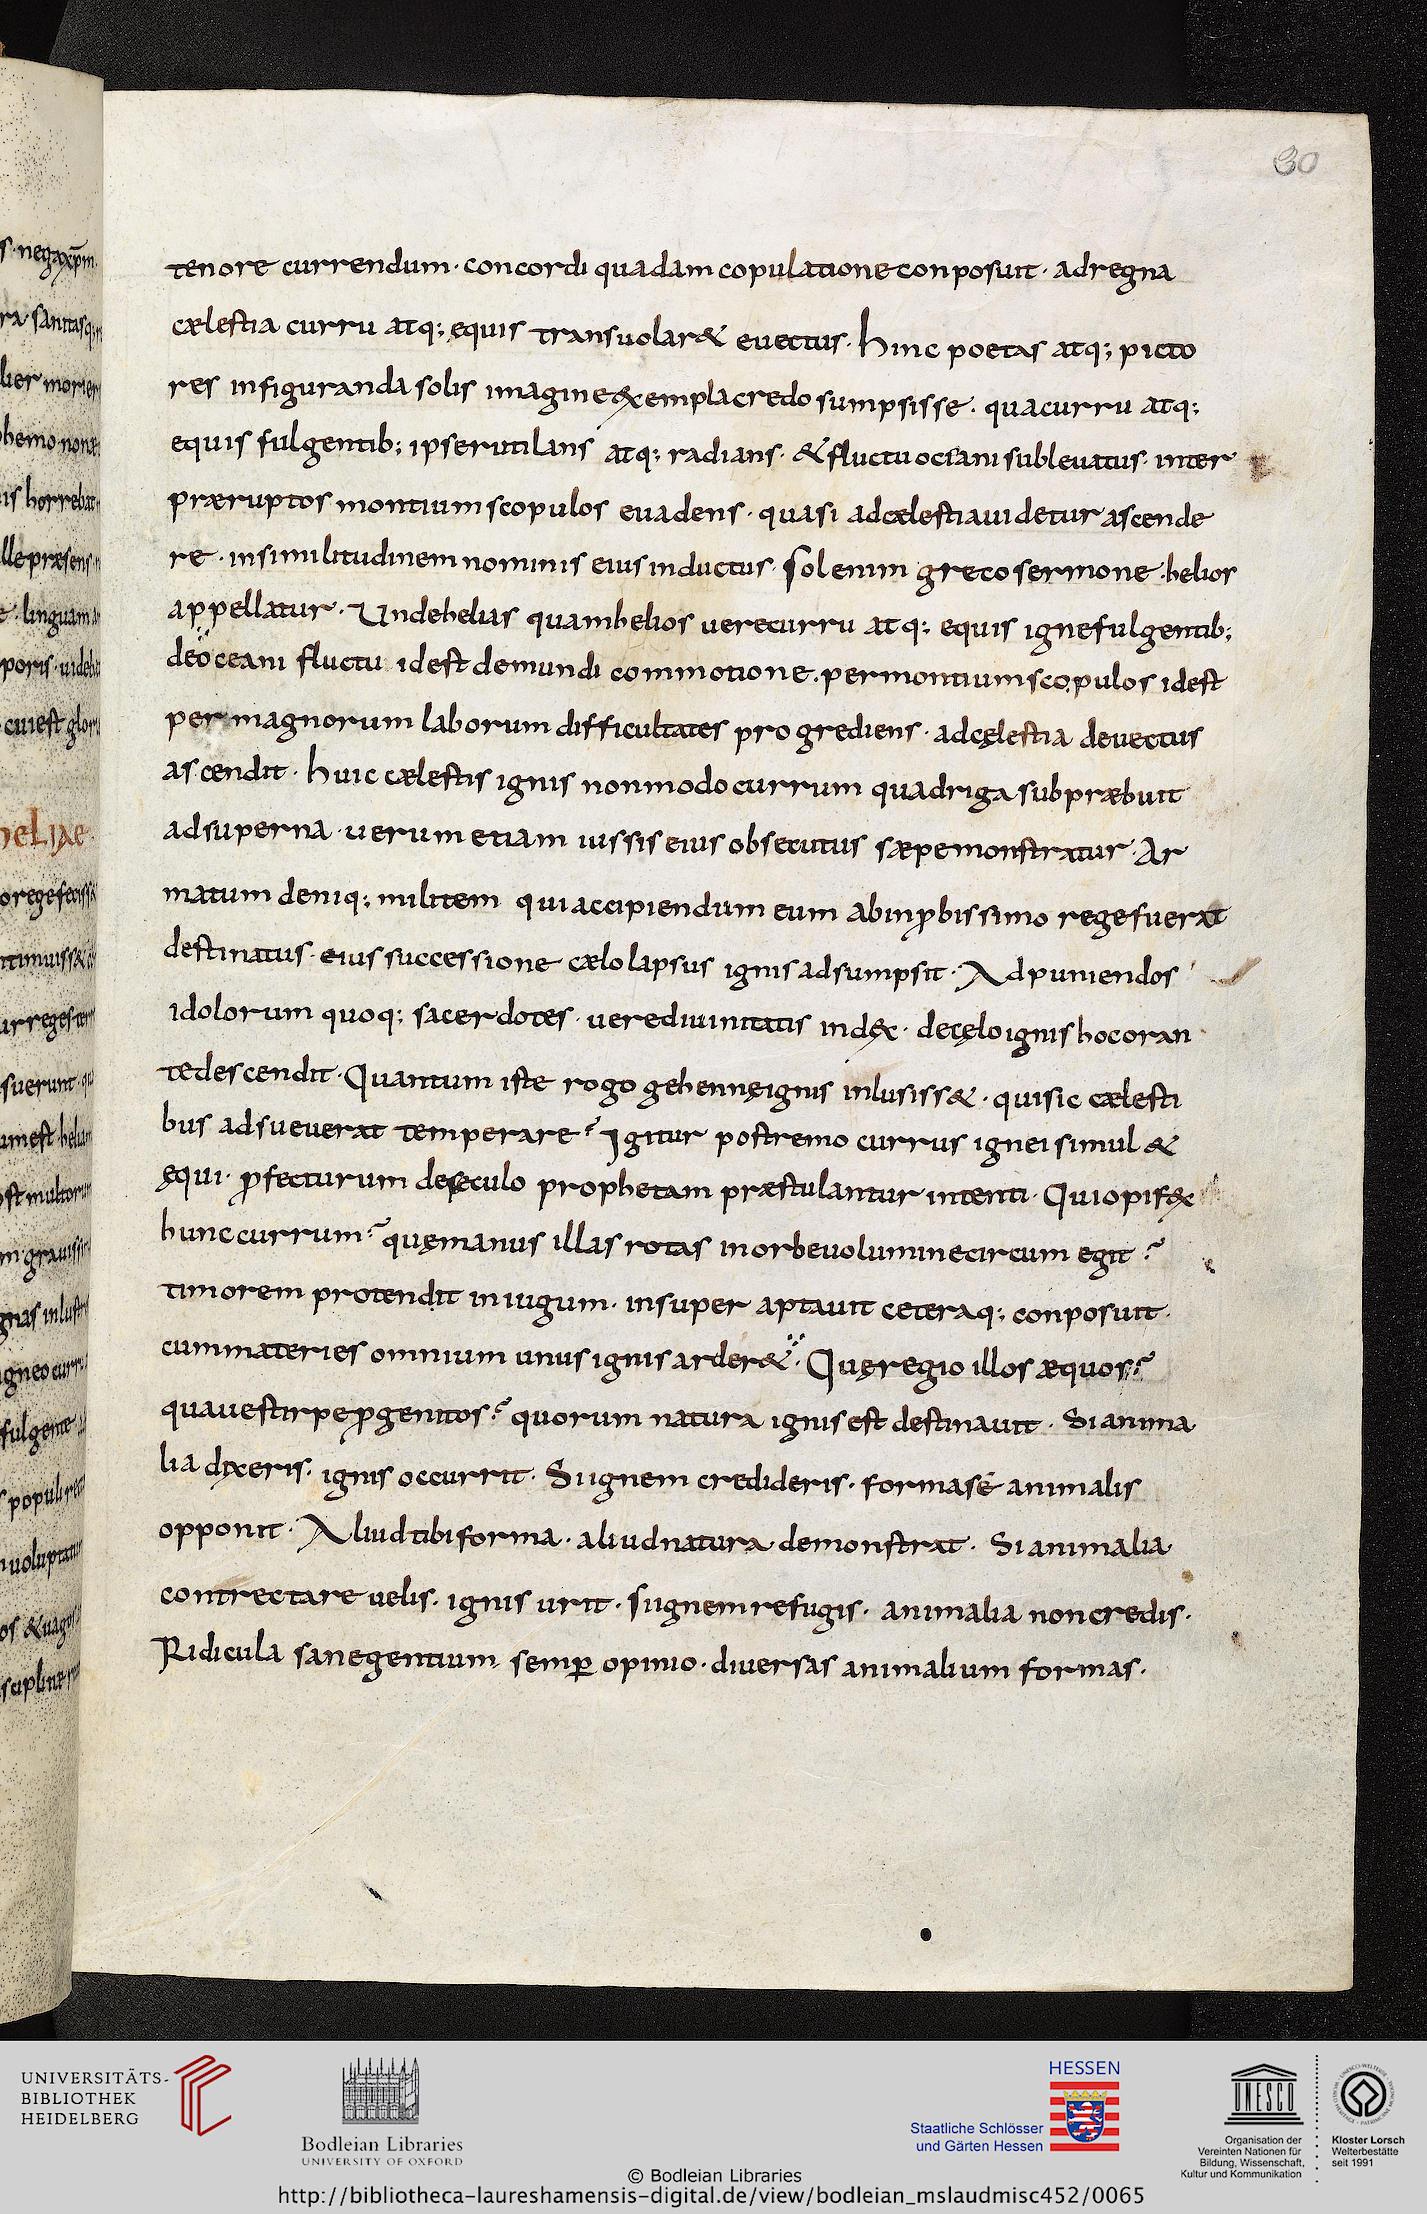 30
tenore currendum · concordi quadam copulatione conposuit · ad regna
cælestia curru atq; equis transuolar& euectus · hinc poetas atq; picto
res in figuranda solis imagine exempla credo sumpsisse · qua curru atq;
equis fulgentib; ipse rutilans atq; radians · & fluctu oceani subleuatus · inter
præruptos montium scopulos euadens · quasi ad cælestia uidetur ascende
re · in similitudinem nominis eius inductus · sol enim greco sermone · helios
appellatur · Unde helias quam helios uere curru atq; equis igne fulgentib;
de oceani fluctu id est de mundi commotione · per montium scopulos id est
per magnorum laborum difficultates progrediens · ad cęlestia deuectus
ascendit · huic cælestis ignis non modo currum quadriga sub præbuit
ad superna · uerum etiam iussis eius obsecutus sæpe monstratur · Ar
matum deniq; militem qui accipiendum eum ab inꝓbissimo rege fuerat
destinatus · eius successione cælo lapsus ignis adsumpsit · Ad puniendos
idolorum quoq; sacerdotes · uere diuinitatis index · de cęlo ignis hoc oran
te descendit · Quantum iste rogo gehennę ignis inlusiss& · qui sic cælesti
bus adsueuerat temperare? Igitur postremo currus ignei simul &
ęqui · ꝓfecturum de sęculo prophetam præstulantur intenti · Qui opifex
hunc currum? quę manus illas rotas in orbe uolumine circum egit?
timorem protendit in iugum · insuper aptauit ceteraq; conposuit ·
cum materies omnium unus ignis arder& · Quę regio illos æquos?
quaue stirpe ꝓgenitos? quorum natura ignis est destinauit · Si anima
lia dixeris · ignis occurrit · Si ignem credideris · forma sé animalis
opponit · Aliud tibi forma · aliud natura demonstrat · Si animalia
contrectare uelis · ignis urit · si ignem refugis · animalia non credis ·
Ridicula sane gentium semꝑ opinio · diuersas animalium formas ·
heliae
UNIVERSITÄTS-
BIBLIOTHEK
HEIDELBERG
Bodleian Libraries
UNIVERSITY OF OXFORD
HESSEN
Staatliche Schlösser
und Gärten Hessen
UNESCO
Organisation der
Vereinten Nationen für
Bildung, Wissenschaft,
Kultur und Kommunikation
Kloster Lorsch
Welterbestätte
seit 1991
© Bodleian Libraries
http://bibliotheca-laureshamensis-digital.de/view/bodleian_mslaudmisc452/0065